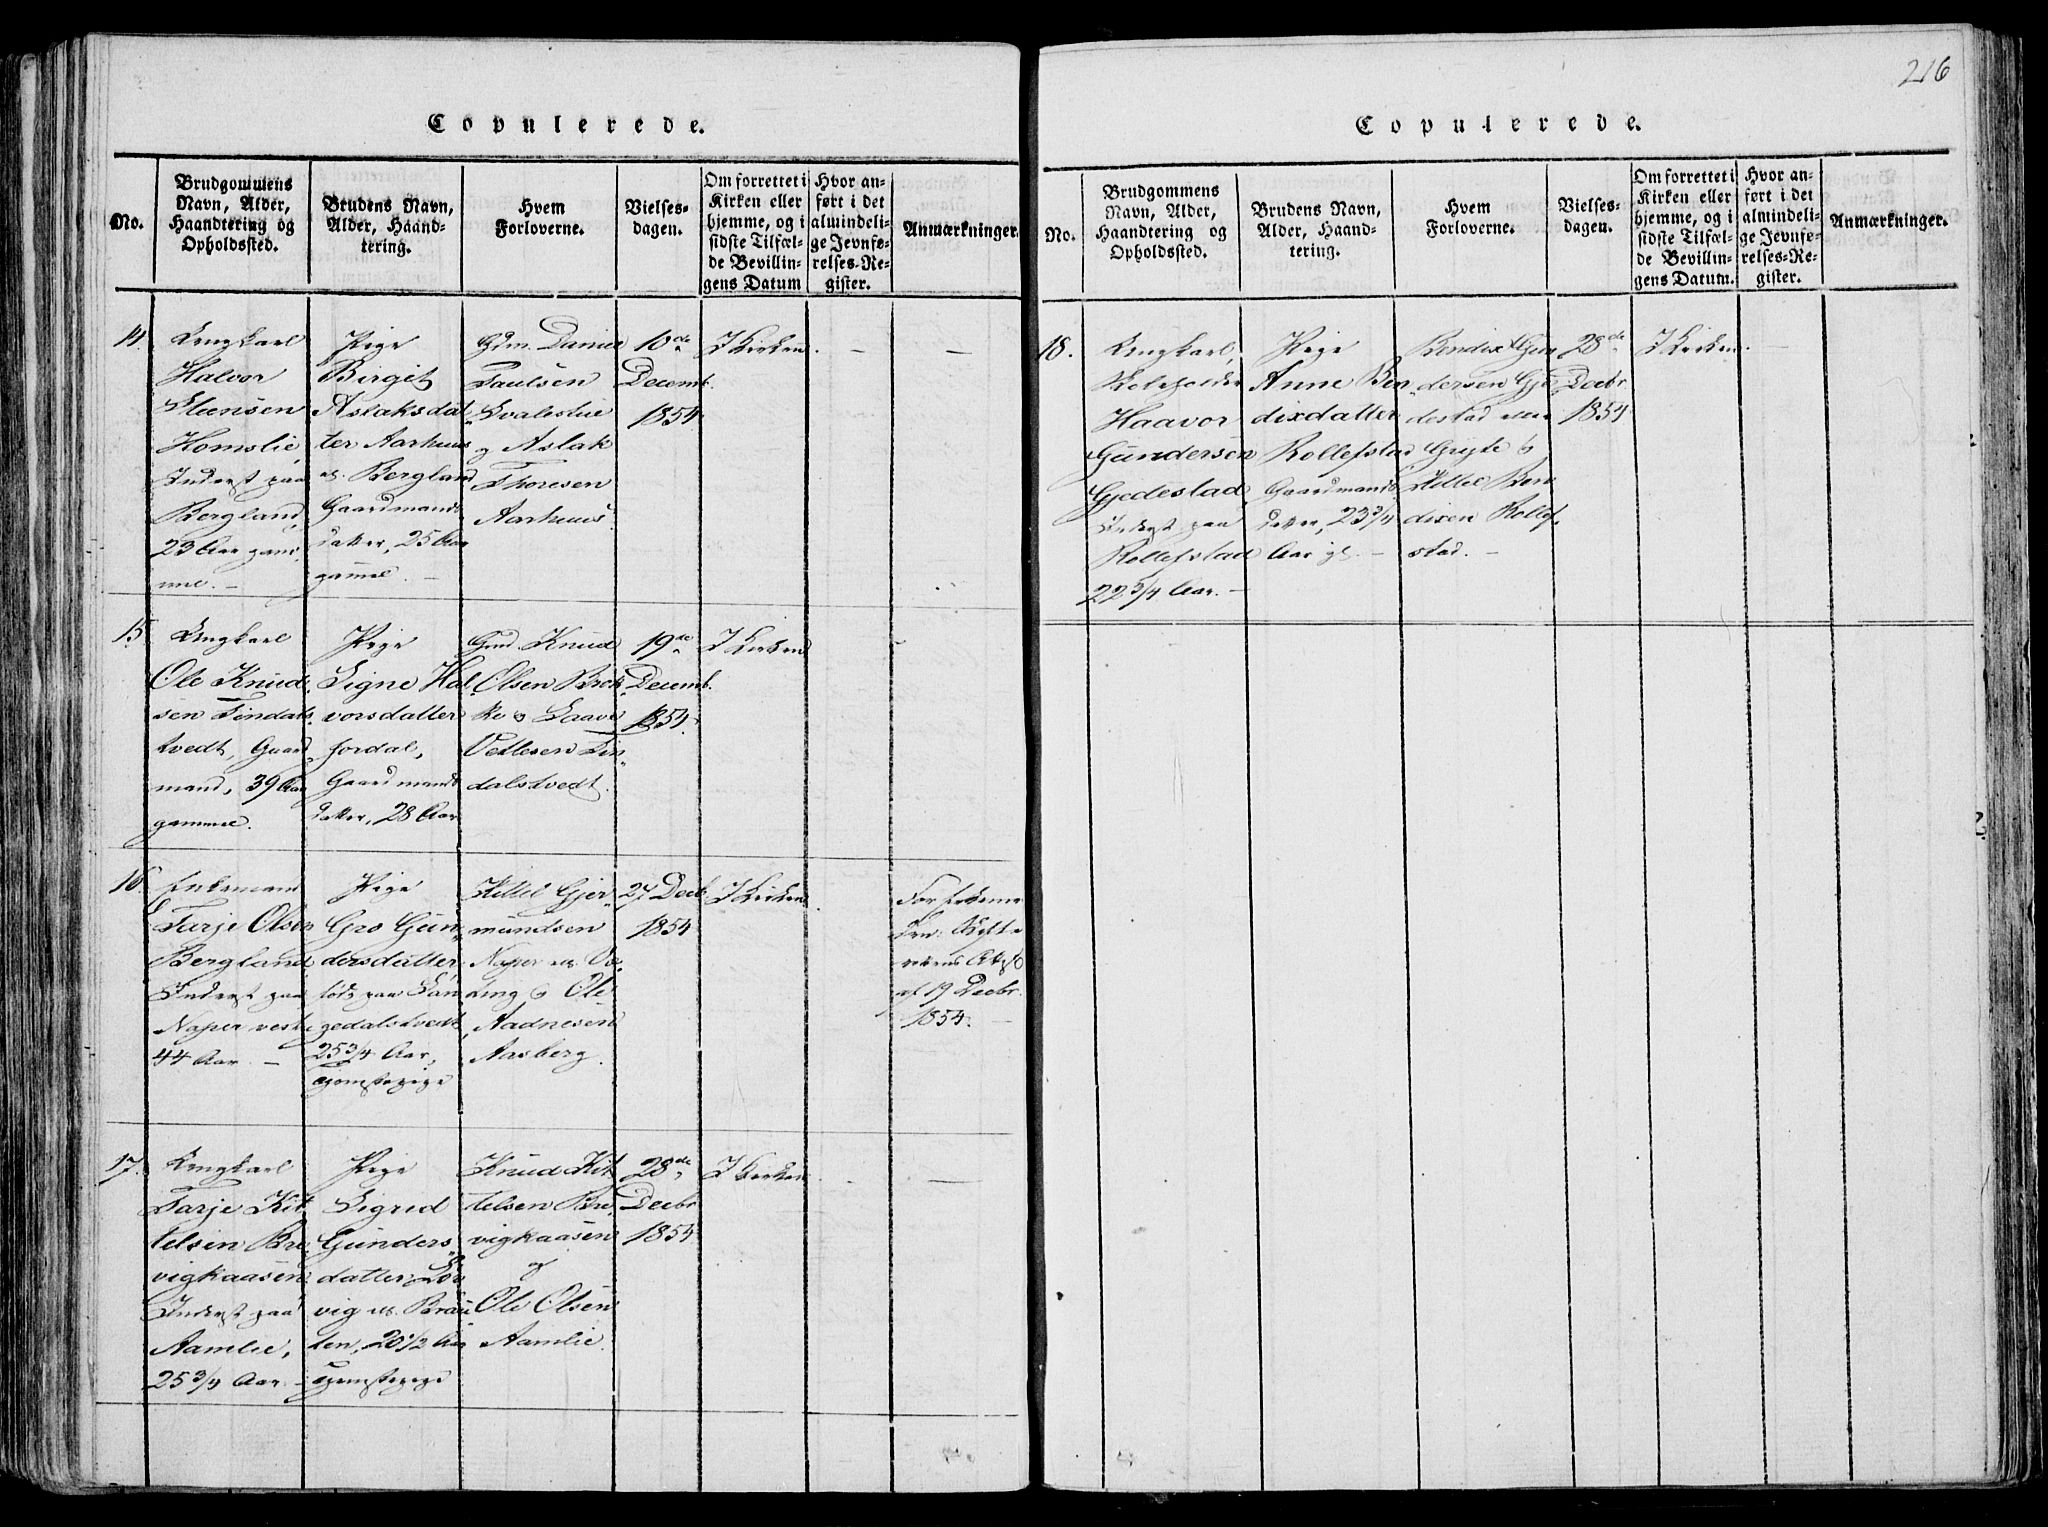 216
Copulerede.
No.
Brudgommens
Navn, Alder,
Haandtering og
Opholdssted.
Brudens Navn,
Alder, Haand-
tering.
Hvem
Forloverne.
Vielses-
dagen.
Om forrettet i
Kirken eller
hjemme, og i
sidste Tilfæl-
de Bevillin-
gens Datum
Hvor an-
ført i det
almindeli-
ge Jevnfø-
relses-Re-
gister.
Anmærkninger.
14.
Ungkarl
Halvor
Homslie,
Inderst paa
Bergland,
23 Aar gam-
mel. -
Pige
Birgit
Aslaksdat
ter Aarhuus
Bergland
Gaardmands
datter, 25 Aar
gammel. -
Gdm. Daniel
Paulsen
Svalestue
og Aslak
Thoresen
Aarhuus
10de
Decemb.
1854.
I Kirken.
-
-
15.
Ungkarl
Ole Knud-
sen Tindals-
tvedt, Gaard
mand, 39 Aar
gammel.
Pige
Signe Hal-
vorsdatter
fordal,
Gaardmands
datter, 28 Aar
Gmd Knud
Olsen Brek-
ke & Taave
Vetlesen Tin
dalstvedt.
19de
Decemb.
1854.
I Kirken
16.
Enkemand
Tarje Olsen
Bergland
Inderst paa
Naper
44 Aar. -
Pige
Gro Gun-
dersdatter
født paa Lan
gedalstvedt,
25 3/4 Aar,
Kittel Gjer-
mundsen
Naper
Ole
Aadnesen
Aasberg.
27 Decb
1854
I Kirken.
For Enkeman
den: Skifte
rettens Attest
af 19 Decbr.
1854. -
17.
Ungkarl
Tarje Kit-
telsen Bre-
vigkaasen
Inderst paa
Aamlie,
25 3/4 Aar. -
Pige
Sigrid
Gunders-
datter
ten, 20 1/2 Aar
Knud Kit
telsen Bre-
vigkaasen
og
Ole Olsen
Aamlie.
28de
Decbr
1854
I Kirken.
-
Copulerede.
No.
Brudgommens
Navn, Alder,
Haandtering og
Opholdssted.
Brudens Navn,
Alder, Haand-
tering.
Hvem
Forloverne.
Vielses-
dagen.
Om forrettet i
Kirken eller
hjemme, og i
sidste Tilfæl-
de Bevillin-
gens Datum.
Hvor an-
ført i det
almindeli-
ge Jevnfø-
relses-Re-
gister.
Anmærkninger.
18.
Ungkarl,
Haavor
Gundersen
Gjedestad
Inderst paa
Rollefstad
22 3/4 Aar. -
Pige
Anne Ben
dixdatter
Rollefstad
Gaardmands
datter, 23 3/4
Aar gl. -
Bendix Gun
dersen Gje-
destad
Kittel Ben
dixen Rollef-
stad. -
28de
Decbr
1854
I Kirken.
-